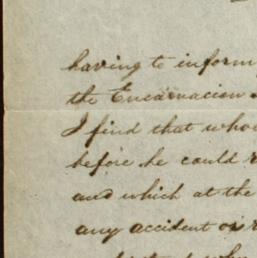 having to inform
the Encarnacion
I find that
before he could
and which at the
any accident or